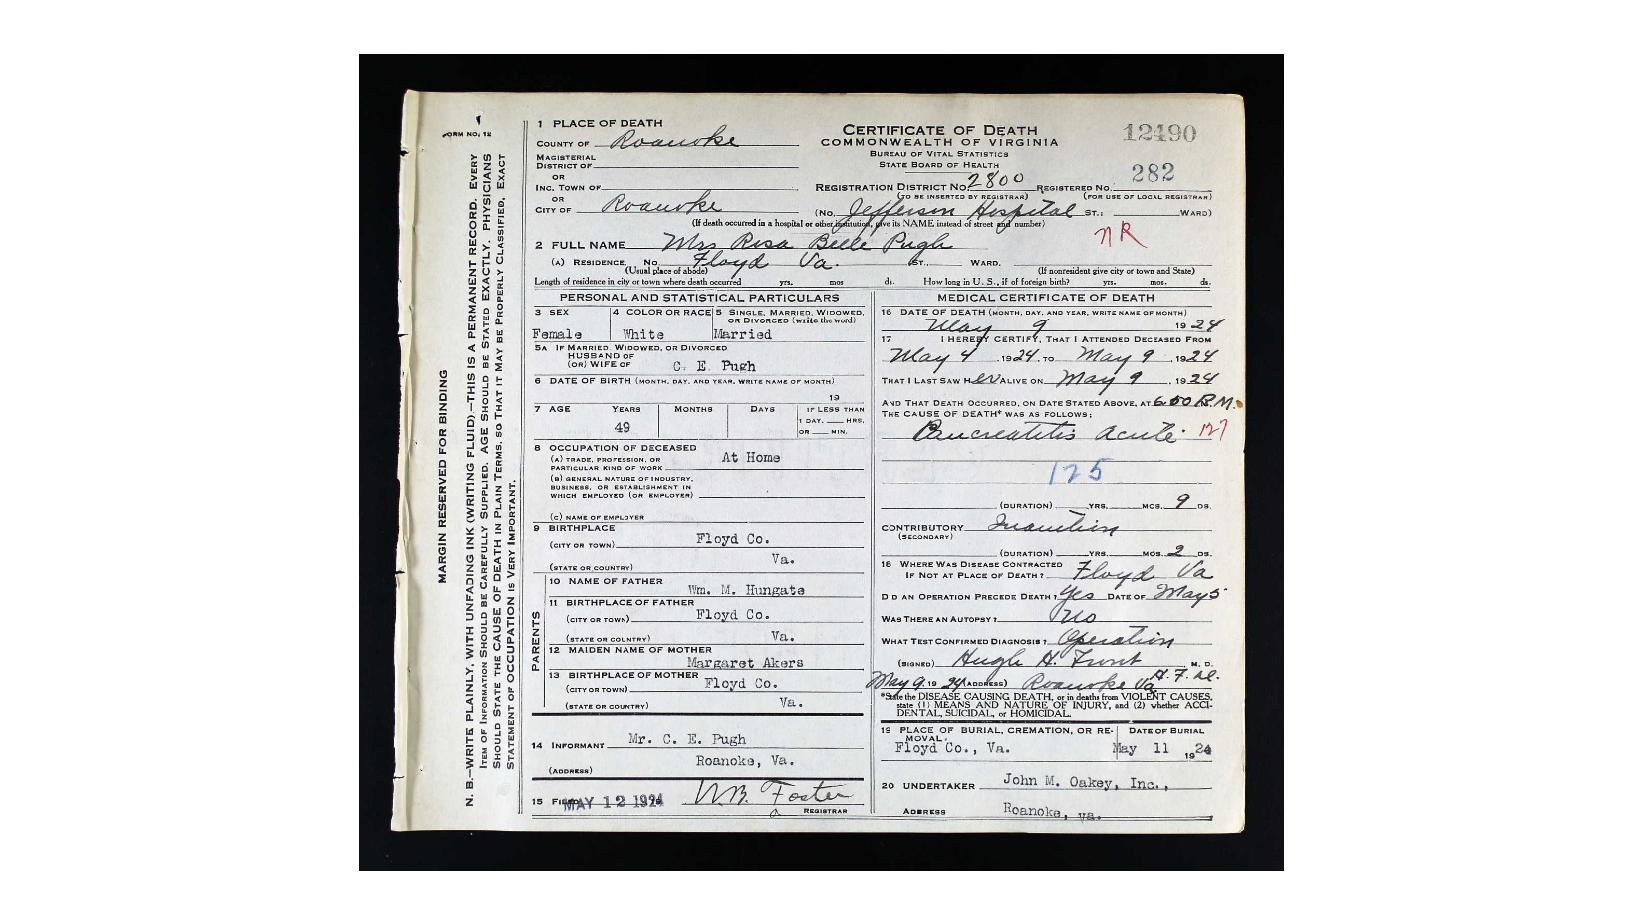 FORM NO. 12
MARGIN RESERVED FOR BINDING
N. B.—WRITE PLAINLY, WITH UNFADING INK (WRITING FLUID).—THIS IS A PERMANENT RECORD. EVERY
ITEM OF INFORMATION SHOULD BE CAREFULLY SUPPLIED. AGE SHOULD BE STATED EXACTLY. PHYSICIANS
SHOULD STATE THE CAUSE OF DEATH IN PLAIN TERMS, SO THAT IT MAY BE PROPERLY CLASSIFIED. EXACT
STATEMENT OF OCCUPATION IS VERY IMPORTANT.
1 PLACE OF DEATH
COUNTY OF Roanoke
MAGISTERIAL
DISTRICT OF
OR
INC. TOWN OF
OR
CITY OF Roanoke
CERTIFICATE OF DEATH
COMMONWEALTH OF VIRGINIA
BUREAU OF VITAL STATISTICS
STATE BOARD OF HEALTH
12490
282
REGISTRATION DISTRICT NO. 2800 REGISTERED NO.
(TO BE INSERTED BY REGISTRAR) (FOR USE OF LOCAL REGISTRAR)
(No. Jefferson Hospital ST.; WARD)
(If death occurred in a hospital or other institution, give its NAME instead of street and number)
NR
2 FULL NAME Mrs Rosa Belle Pugh
(A) RESIDENCE. No. Floyd Va. ST., WARD.
(Usual place of abode) (If nonresident give city or town and State)
Length of residence in city or town where death occurred yrs. mos ds. How long in U. S., if of foreign birth? yrs. mos. ds.
PERSONAL AND STATISTICAL PARTICULARS
3 SEX
Female
4 COLOR OR RACE
White
5 SINGLE, MARRIED, WIDOWED,
OR DIVORCED (write the word)
Married
5A IF MARRIED, WIDOWED, OR DIVORCED
HUSBAND OF
(OR) WIFE OF C. E. Pugh
6 DATE OF BIRTH (MONTH, DAY, AND YEAR, WRITE NAME OF MONTH)
19
7 AGE YEARS MONTHS DAYS IF LESS THAN
1 DAY, HRS.
OR MIN.
49
8 OCCUPATION OF DECEASED
(A) TRADE, PROFESSION, OR
PARTICULAR KIND OF WORK At Home
(B) GENERAL NATURE OF INDUSTRY,
BUSINESS, OR ESTABLISHMENT IN
WHICH EMPLOYED (OR EMPLOYER)
(C) NAME OF EMPLOYER
9 BIRTHPLACE
(CITY OR TOWN) Floyd Co.
(STATE OR COUNTRY) Va.
PARENTS
10 NAME OF FATHER
Wm. M. Hungate
11 BIRTHPLACE OF FATHER
(CITY OR TOWN) Floyd Co.
(STATE OR COUNTRY) Va.
12 MAIDEN NAME OF MOTHER
Margaret Akers
13 BIRTHPLACE OF MOTHER
(CITY OR TOWN) Floyd Co.
(STATE OR COUNTRY) Va.
14 INFORMANT Mr. C. E. Pugh
(ADDRESS) Roanoke, Va.
15 FILED MAY 12 1924 W.B. Foster
REGISTRAR
MEDICAL CERTIFICATE OF DEATH
16 DATE OF DEATH (MONTH, DAY, AND YEAR, WRITE NAME OF MONTH)
May 9 1924
17 I HEREBY CERTIFY, THAT I ATTENDED DECEASED FROM
May 4, 1924, TO May 9, 1924
THAT I LAST SAW HER ALIVE ON May 9, 1924
AND THAT DEATH OCCURRED, ON DATE STATED ABOVE, AT 6:50 P.M.
THE CAUSE OF DEATH* WAS AS FOLLOWS:
Pancreatitis acute 127
125
(DURATION) YRS. MOS. 9 DS.
CONTRIBUTORY Inanition
(SECONDARY)
(DURATION) YRS. MOS. 2 DS.
18 WHERE WAS DISEASE CONTRACTED
IF NOT AT PLACE OF DEATH? Floyd Va
DID AN OPERATION PRECEDE DEATH? Yes DATE OF May 5
WAS THERE AN AUTOPSY? No
WHAT TEST CONFIRMED DIAGNOSIS? Operation
(SIGNED) Hugh H. Trout M. D.
May 9, 1924 (ADDRESS) Roanoke Va
*State the DISEASE CAUSING DEATH, or in deaths from VIOLENT CAUSES,
state (1) MEANS AND NATURE OF INJURY, and (2) whether ACCI-
DENTAL, SUICIDAL, or HOMICIDAL.
19 PLACE OF BURIAL, CREMATION, OR RE-
MOVAL.
Floyd Co., Va.
DATE OF BURIAL
May 11 1924
20 UNDERTAKER John M. Oakey, Inc.,
ADDRESS Roanoke, va.